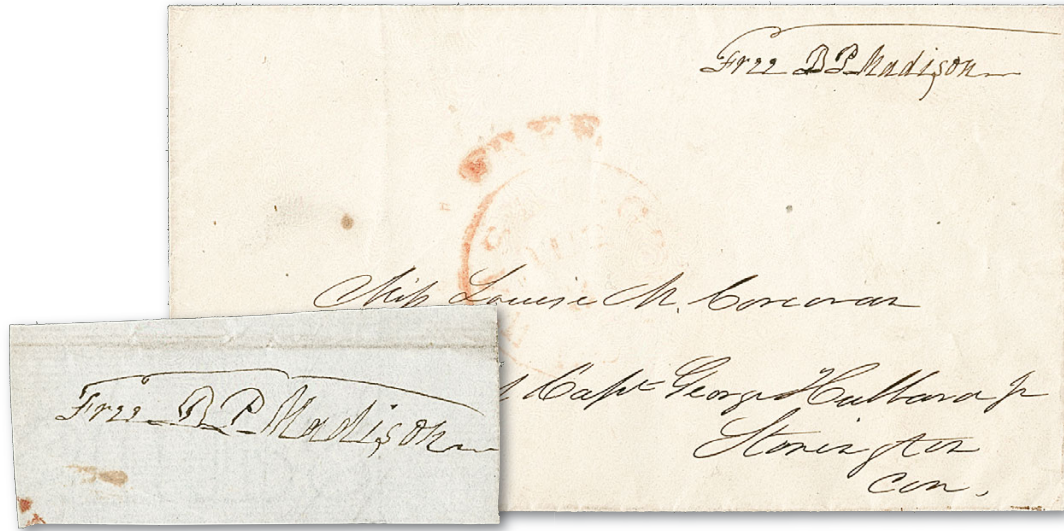 Free D P Madison
FREE
Miss Louise M. Corcoran
Capt George Hubbard Jr
Stonington
Con.
Free D P Madison